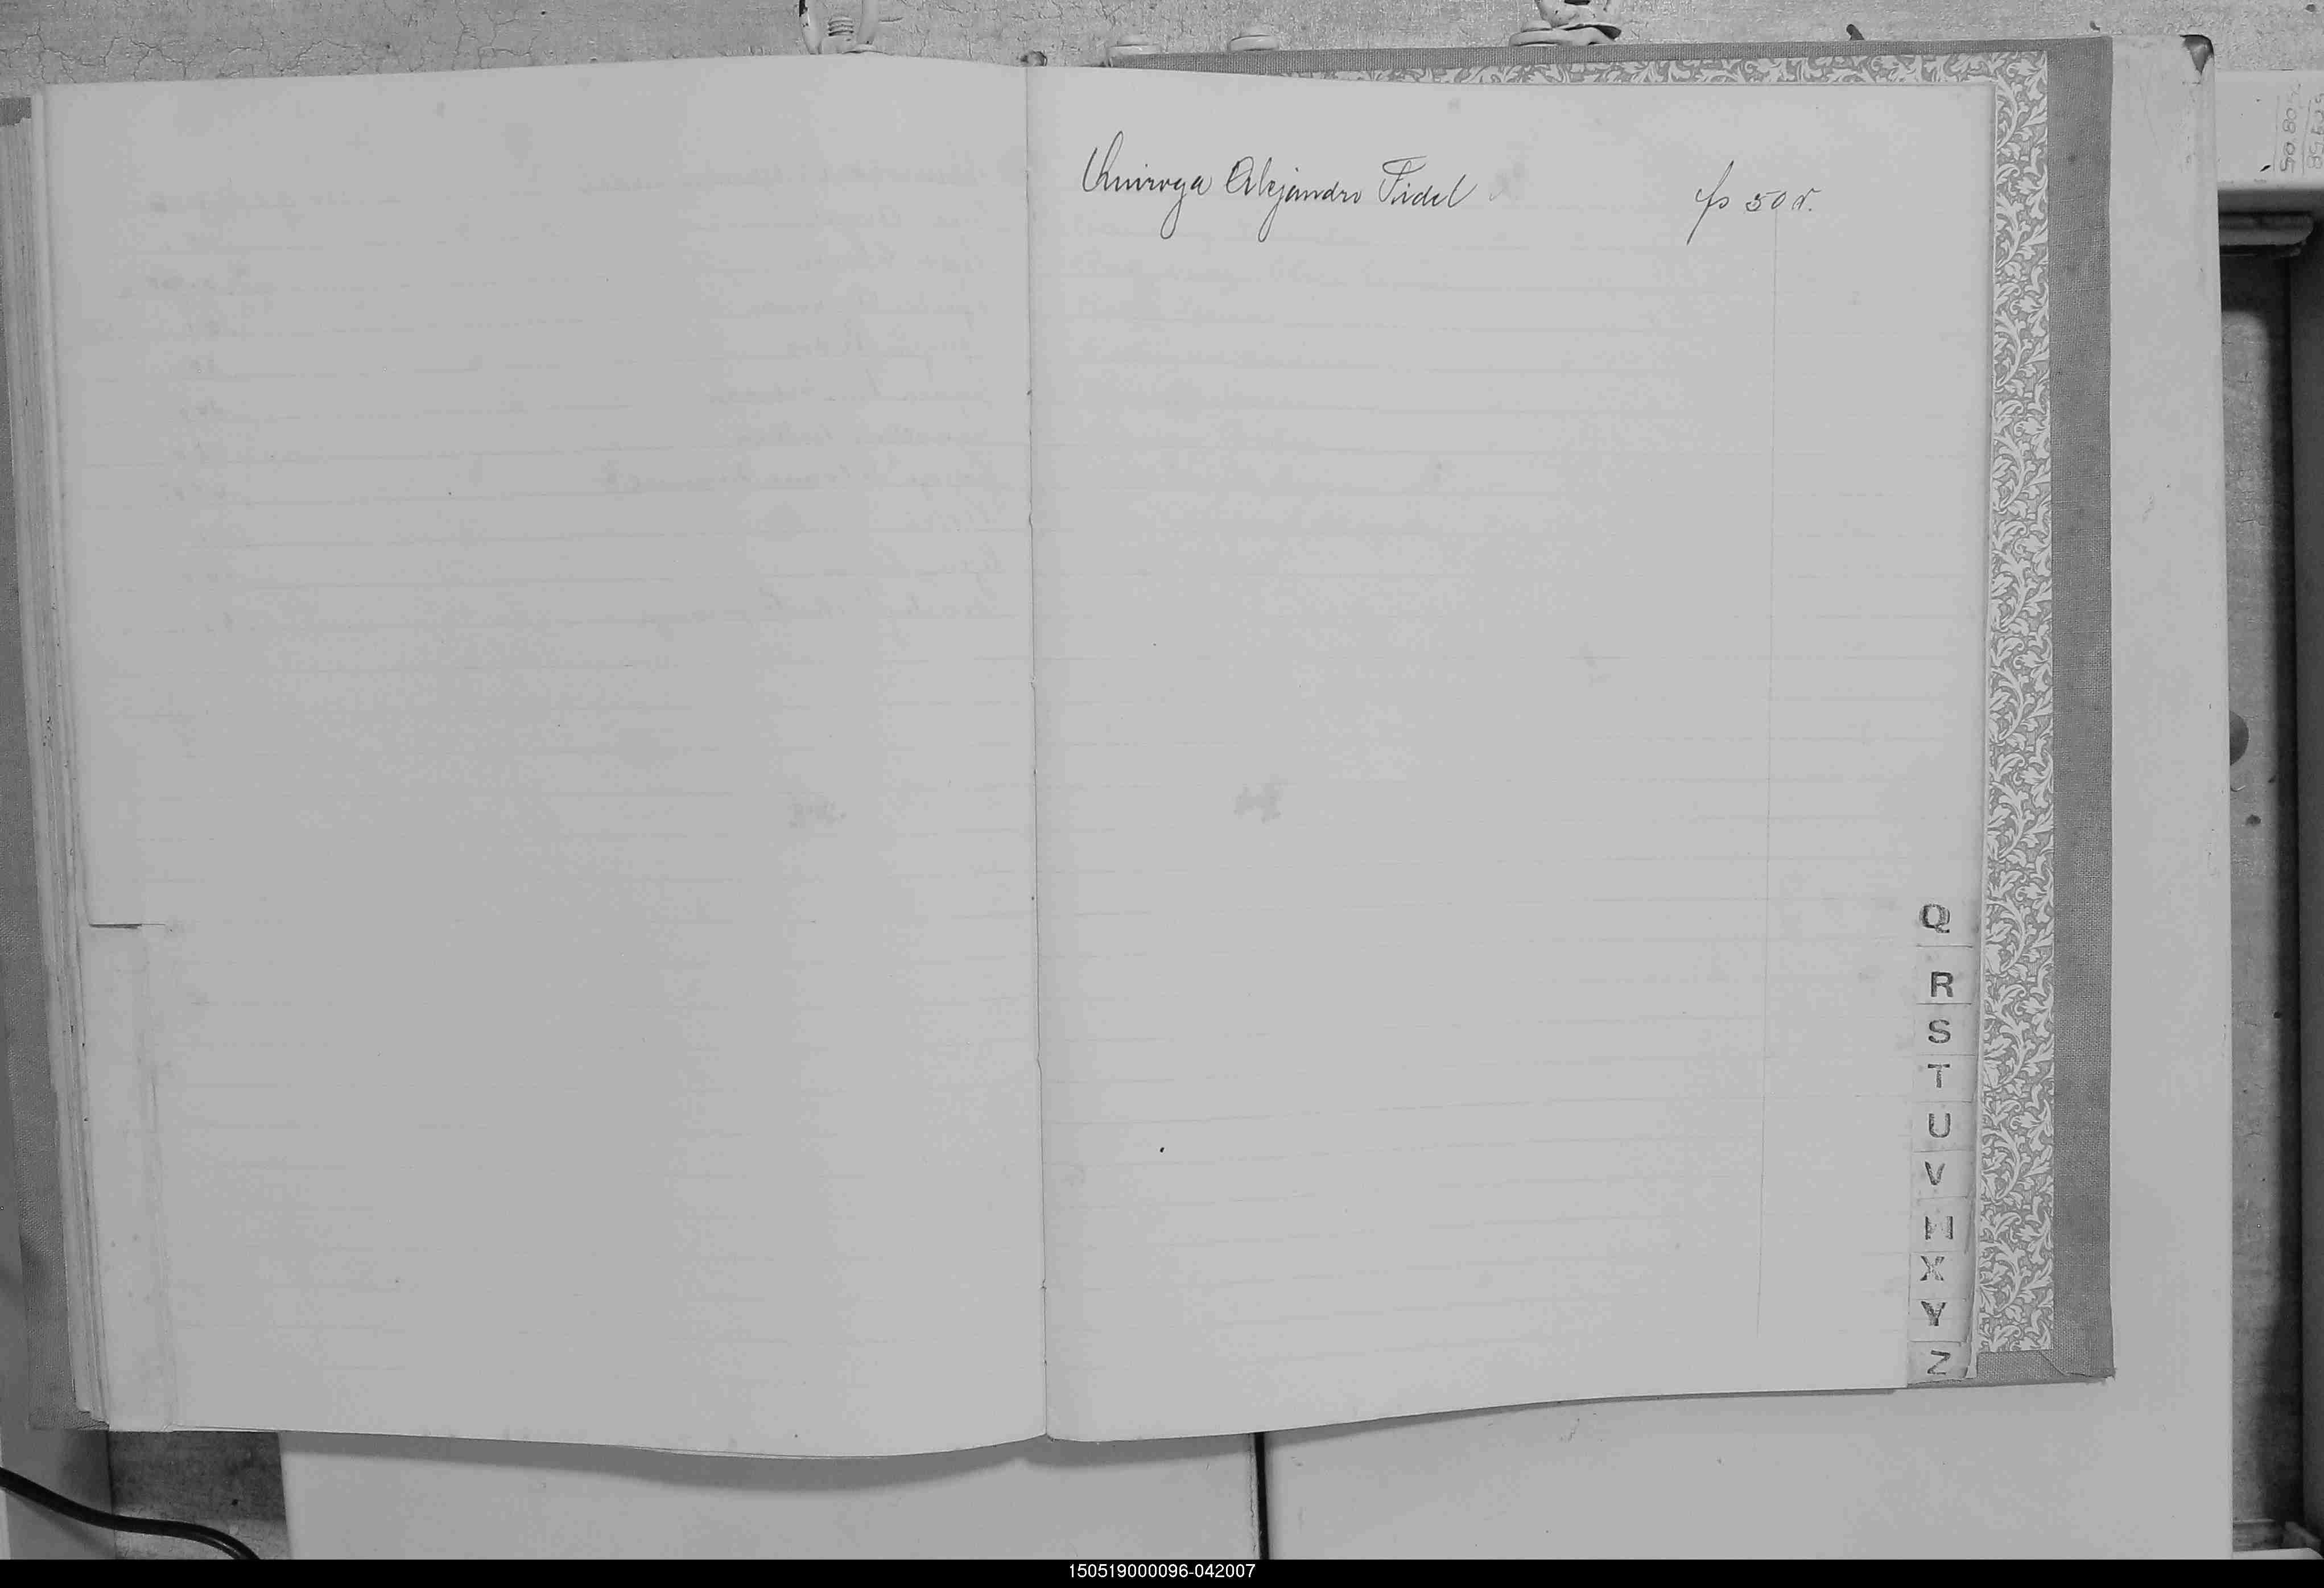 Quiroga Alejandro Fidel fs 50 v.
Q
R
S
T
U
V
W
X
Y
Z
150519000096-042007